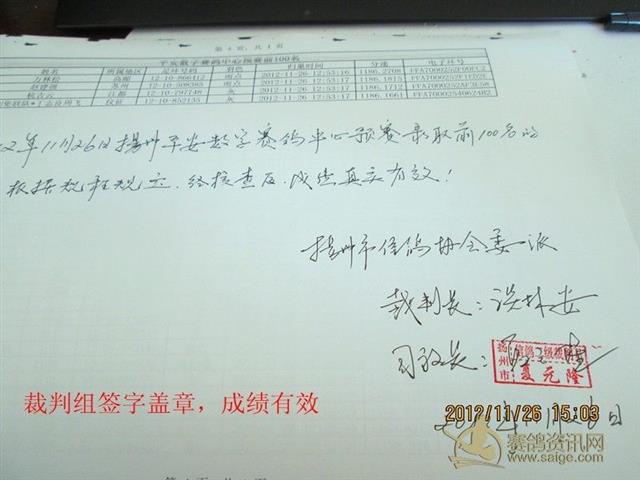 第 4 页, 共 4 页
平安数字赛鸽中心预赛前100名
姓名 所属地区 足环号码 羽色 归巢时间 分速 电子环号
万林松 高邮 12-10-866412 雨点 2012-11-26 12:53:16 1186.2708
赵建强 苏州 12-10-508365 雨点 2012-11-26 12:53:17 1186.1712
杭吉云 江都 12-10-797748 灰 2012-11-26 12:53:17
仪征 12-10-852135 灰 2012-11-26 12:53:17 1186.1661 FFA70002540624B2
2年11月26日扬州平安数字赛鸽中心预赛录取前100名的
根据规程规定.经核查后.成绩真实有效!
扬州市信鸽协会委派
裁判长:
司放长:
扬州市 信鸽
夏元隆
裁判组签字盖章，成绩有效
2012/11/26 15:03
赛鸽资讯网
www.saige.com